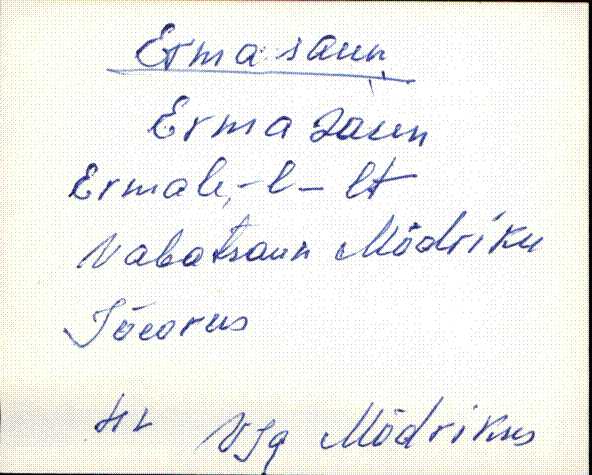 Erma saun
Erma saun
Ermale, -l- lt
Vabatsaun Mõdriku
Jõeorus
VJg Mõdrikus